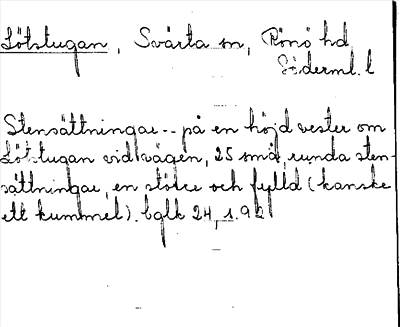 Lötstugan, Svärta sn, Rönö hd
Söderml. l
Stensättningar -- på en höjd vester om
Lötstugan vid vägen, 25 små, runda sten-
sättningar, en större och fylld (kanske
ett kummel). bglk 24, 1.92